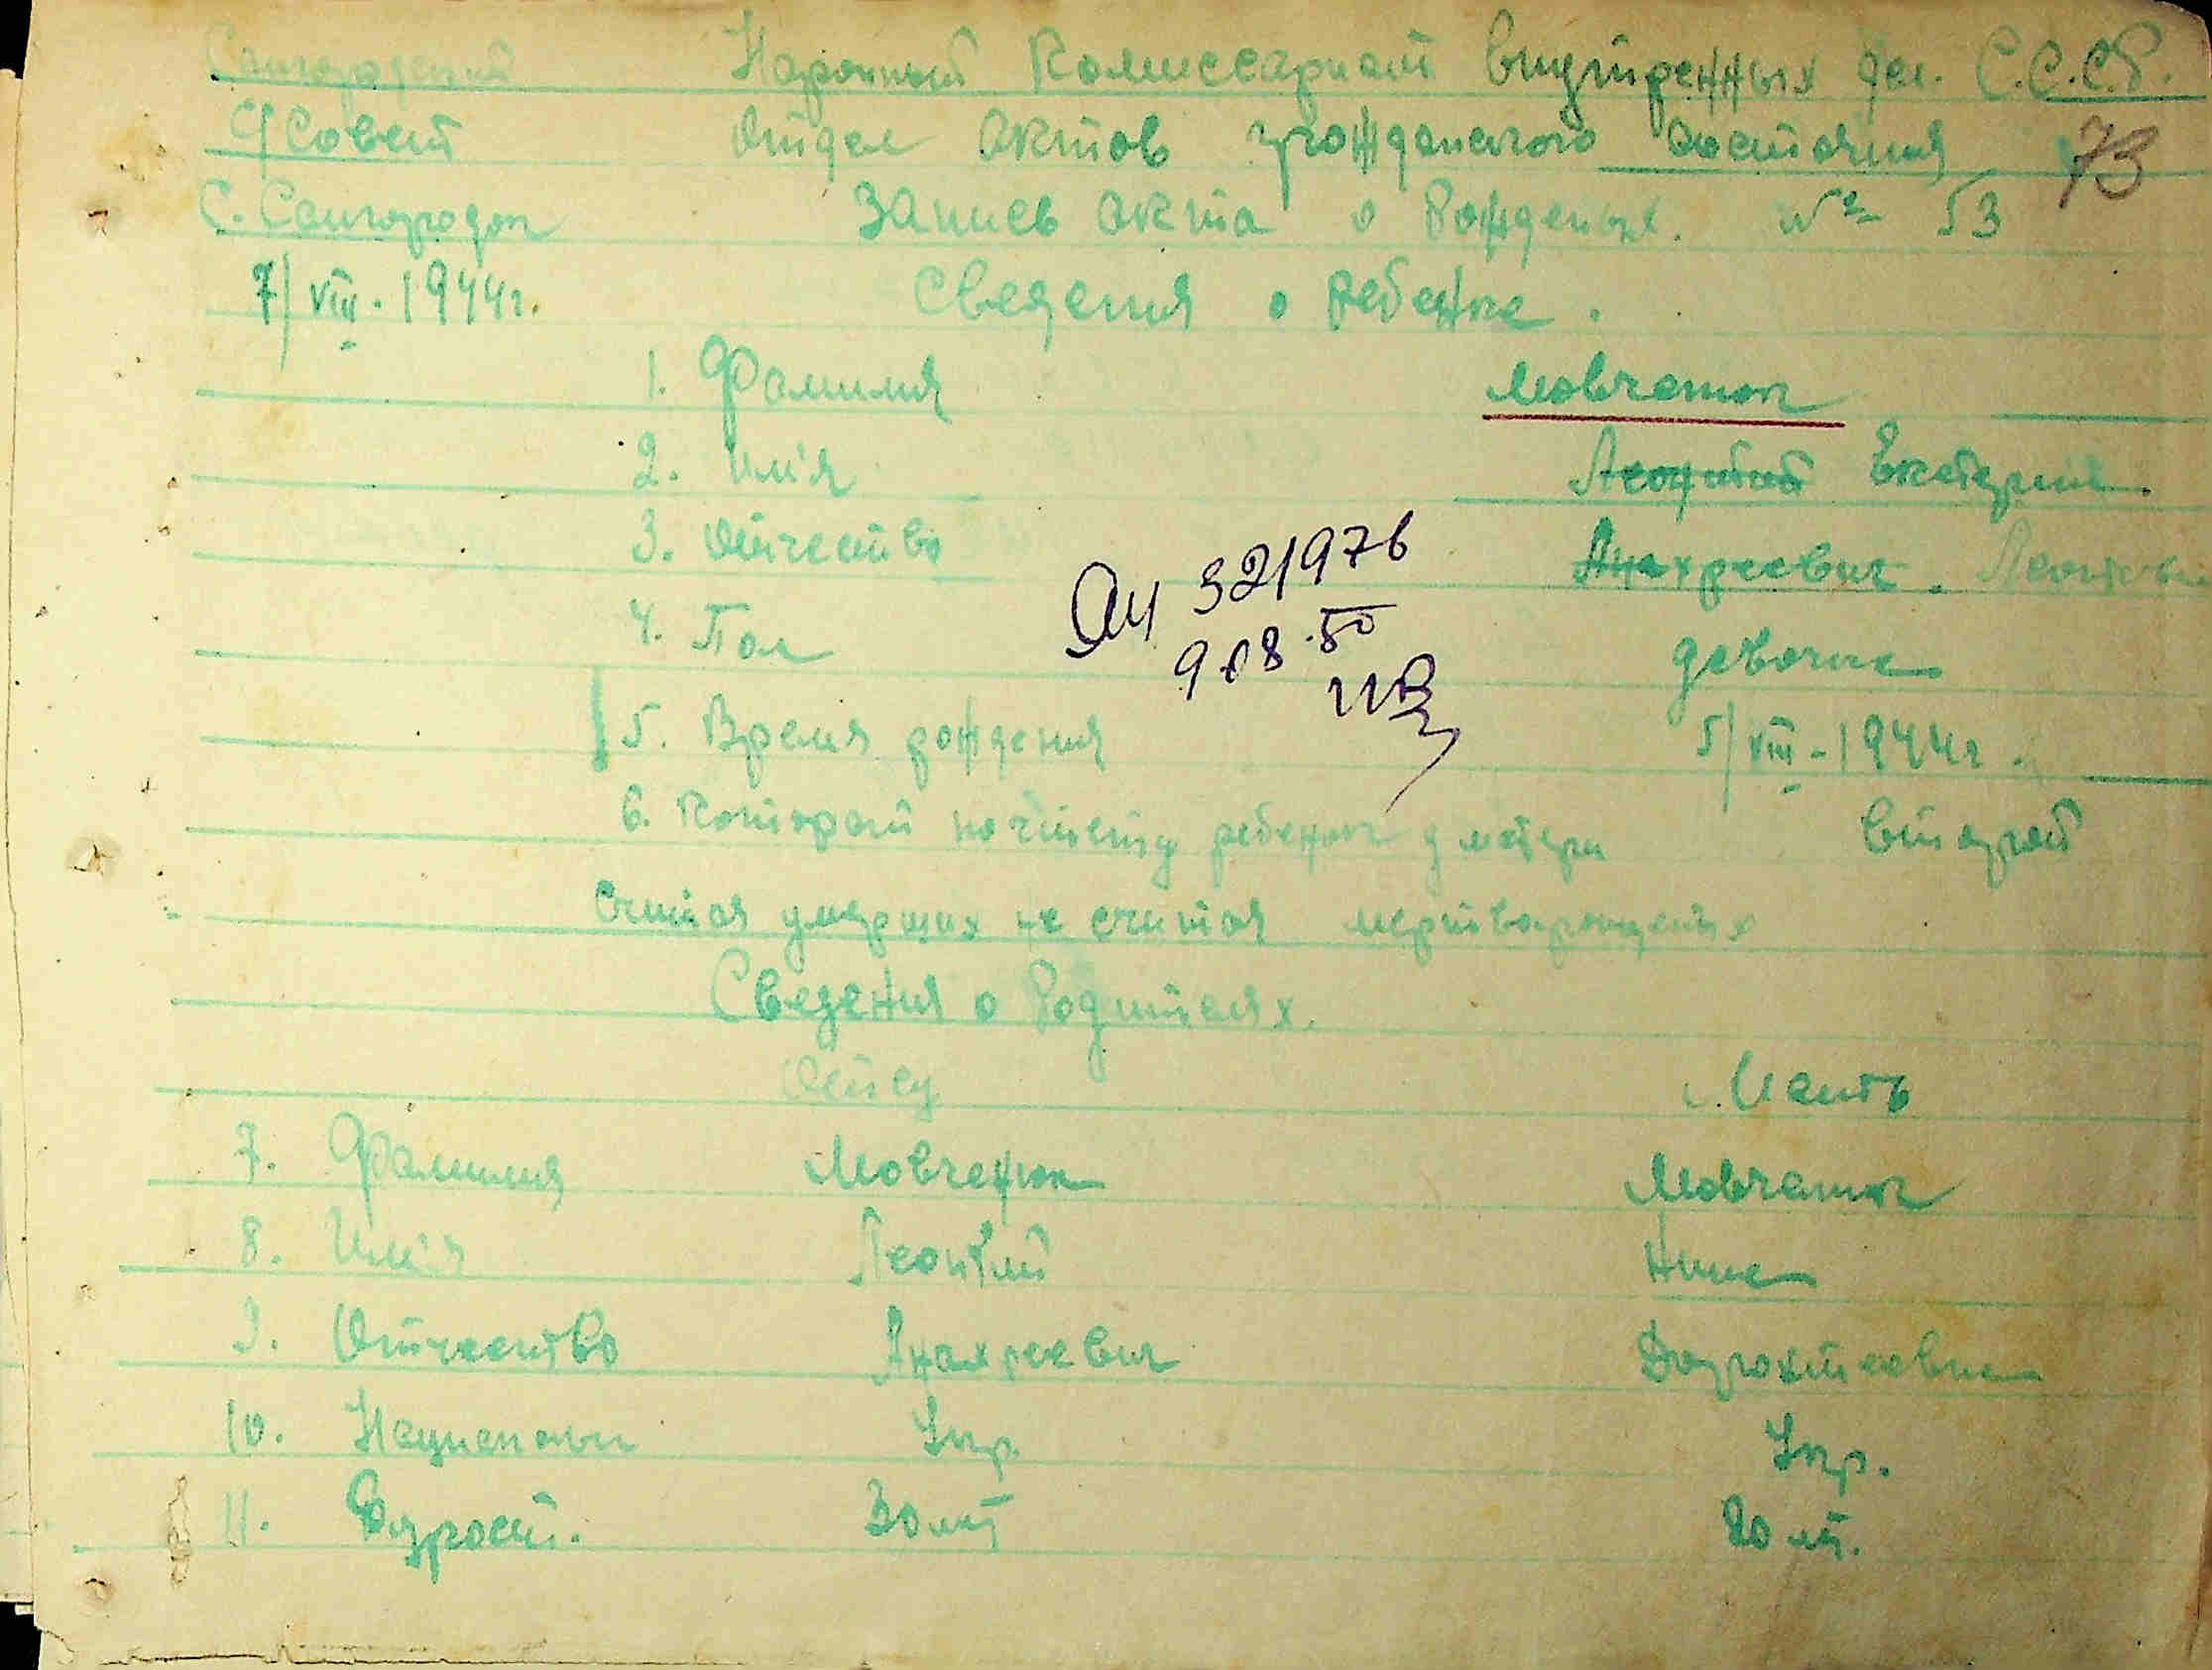 Сангородский Народный Комиссариат внутренных дел. С.С.С.Р.
с/Совет Отдел актов гражданского состояния 73
С. Сангородок Запись акта о Рожденых. № 53
7/VIII-1944г. Сведения о ребенке.
1. Фамилия Мовчанюк
2. Им'я Леонтий Екатерина
3. Отчество Анахреевич.
4. Пол девочка
321976
5. Время рождения 5/VIII-1944г.
6. Который по счету ребенок у матери второй
Считая умерших не считая мертворощеных
Сведения о Родителях.
Отец Мать
7. Фамилия Мовченюк Мовчанюк
8. Им'я Леонтий Нина
9. Отчество Анахреевич
10. Национальн Укр. Укр.
11. Возрост. 30 лет 20 лет.